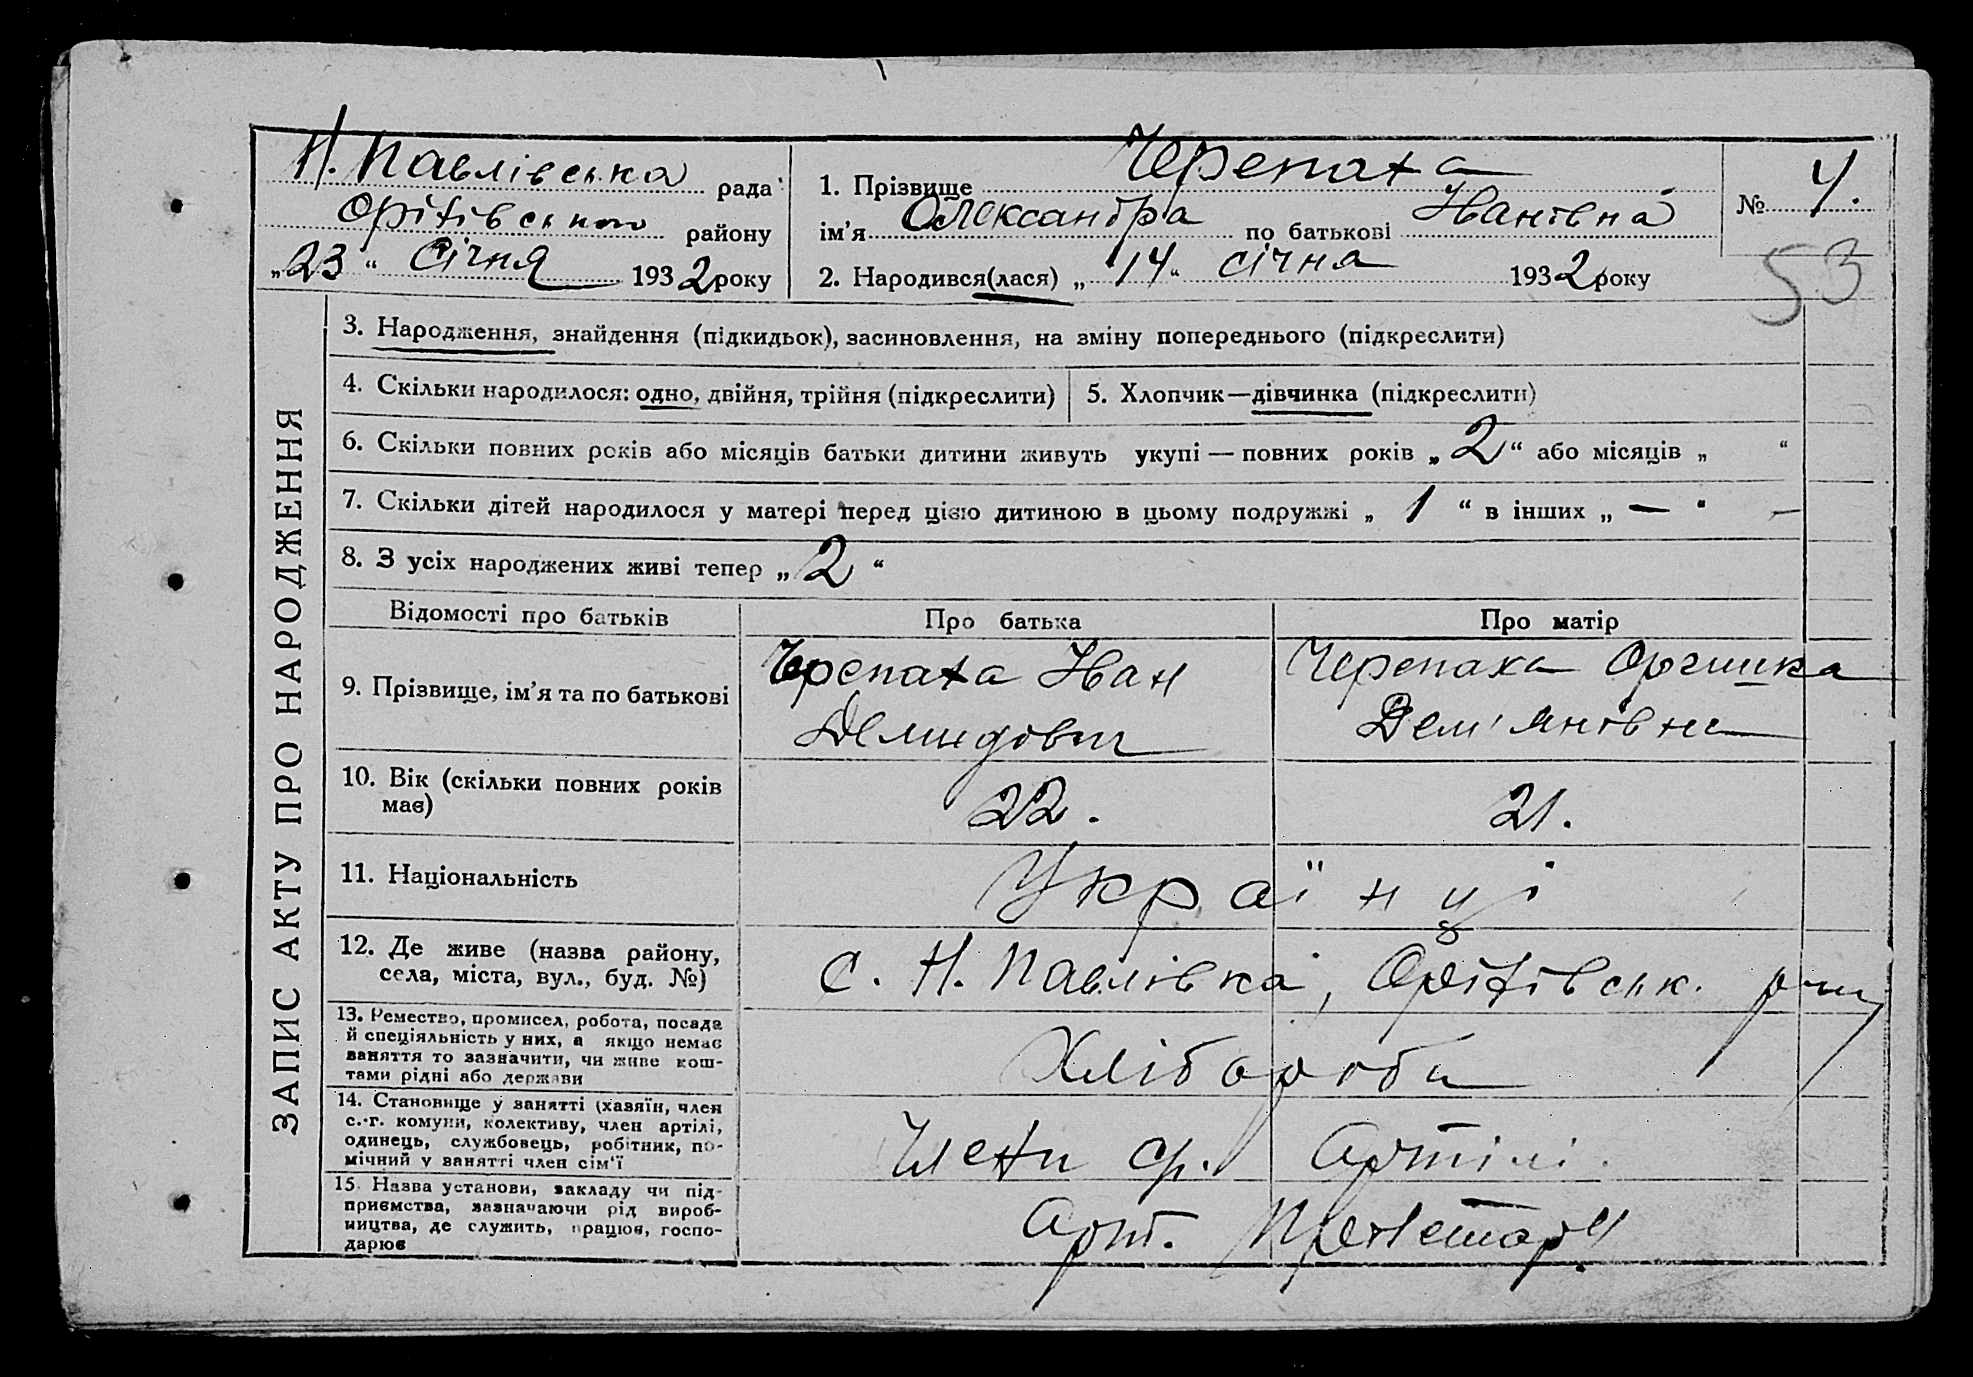 Н. Павлівська рада
Оріхівського району
„23“ Січня 1932 року
1. Прізвище Черепаха
ім'я Олександра по батькові Іванівна
2. Народився(лася) „14“ січня 1932 року
№ 4.
53
ЗАПИС АКТУ ПРО НАРОДЖЕННЯ
3. Народження, знайдення (підкидьок), засиновлення, на зміну попереднього (підкреслити)
4. Скільки народилося: одно, двійня, трійня (підкреслити)
5. Хлопчик—дівчинка (підкреслити)
6. Скільки повних років або місяців батьки дитини живуть укупі — повних років „2“ або місяців „ “
7. Скільки дітей народилося у матері перед цією дитиною в цьому подружжі „ 1 “ в інших „ — “ —
8. З усіх народжених живі тепер „2“
Відомості про батьків
Про батька
Про матір
9. Прізвище, ім'я та по батькові
Черепаха Іван
Демидович
Черепаха
Дем'янівна
10. Вік (скільки повних років
має)
22.
21.
11. Національність
Українці
12. Де живе (назва району,
села, міста, вул., буд. №)
с. Н. Павлівка, Оріхівськ. р-ну
13. Ремество, промисел, робота, посада
й спеціяльність у них, а якщо немає
заняття то зазначити, чи живе кош-
тами рідні або держави
Хлібороби
14. Становище у занятті (хазяїн, член
с.-г. комуни, колективу, член артілі,
одинець, службовець, робітник, по-
мічний у занятті член сім'ї
Члени Артілі
15. Назва установи, закладу чи під-
приємства, зазначаючи рід вироб-
ництва, де служить, працює, госпо-
дарює
Арт. Пролетар